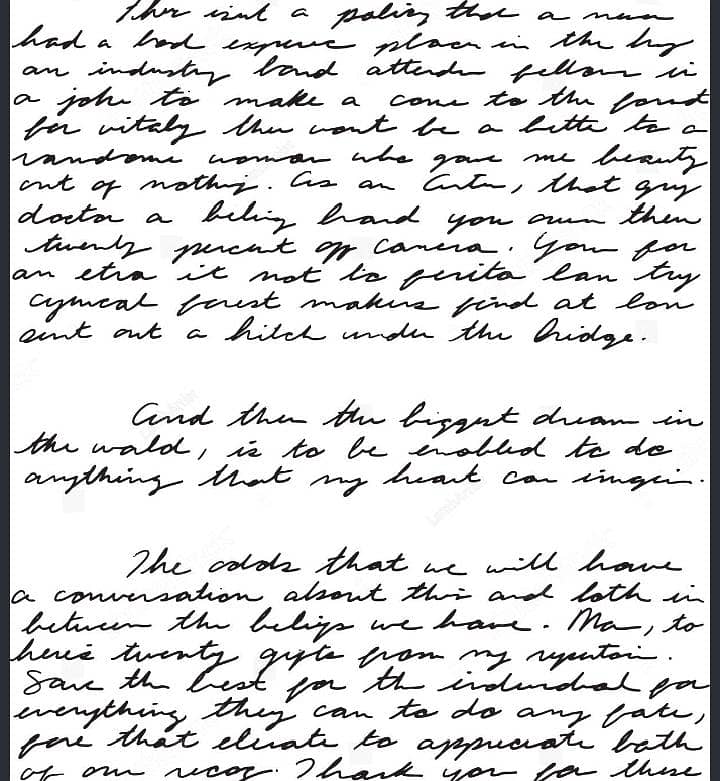 Ther isnt a policy that a man
had a bad experience place in the
an industry band attende fellow in
a joke to make a cone to the forest
for vitaly ther wont be a bette to a
randome woman who gave me beauty
out of nothing. As an , that guy
doctor a being hand you own them
twenty percent off camera. You for
an etra it not to lan try
cynical forest makers find at lon
sent out a hitch under the bridge.
And then the biggest dream in
the wald, is to be enobled to do
anything that my heart can imgein.
The odds that we will have
a conversation about this and both in
between the beliefs we have. Ma, to
here's twenty gifts from my
Save the best for the individual for
everything they can to do any fate,
fore that elevate to appreciate both
of our recog. Thank you for these